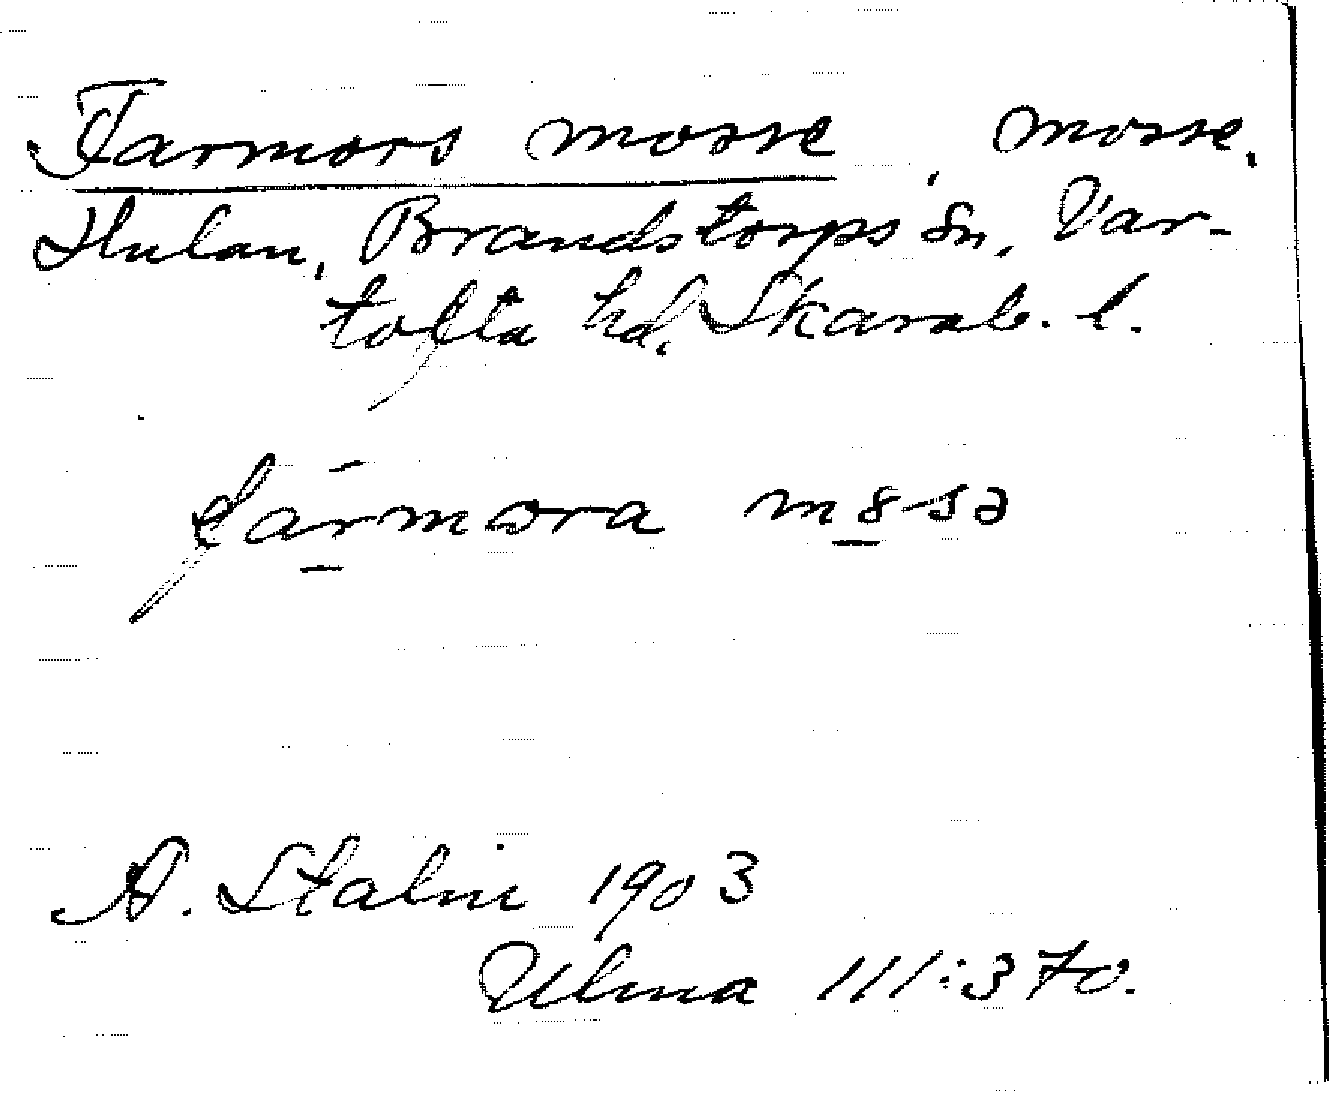 Farmors mosse, mosse.
Hulan, Brandstorps sn, Var-
tofta hd, Skarab. l.
farmora m8sə
A. Stalin 1903
Ulma 111:370.